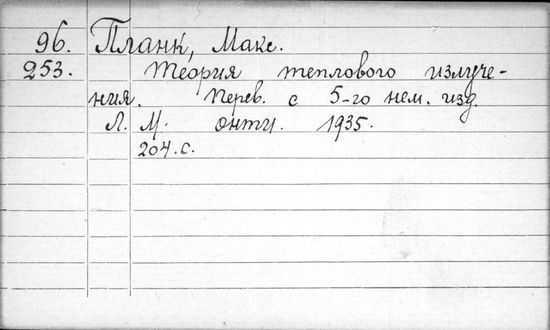 96. Планк, Макс.
253. Теория теплового излуче-
ния. Перев. с 5-го нем. изд.
Л. М. онти. 1935.
204.с.